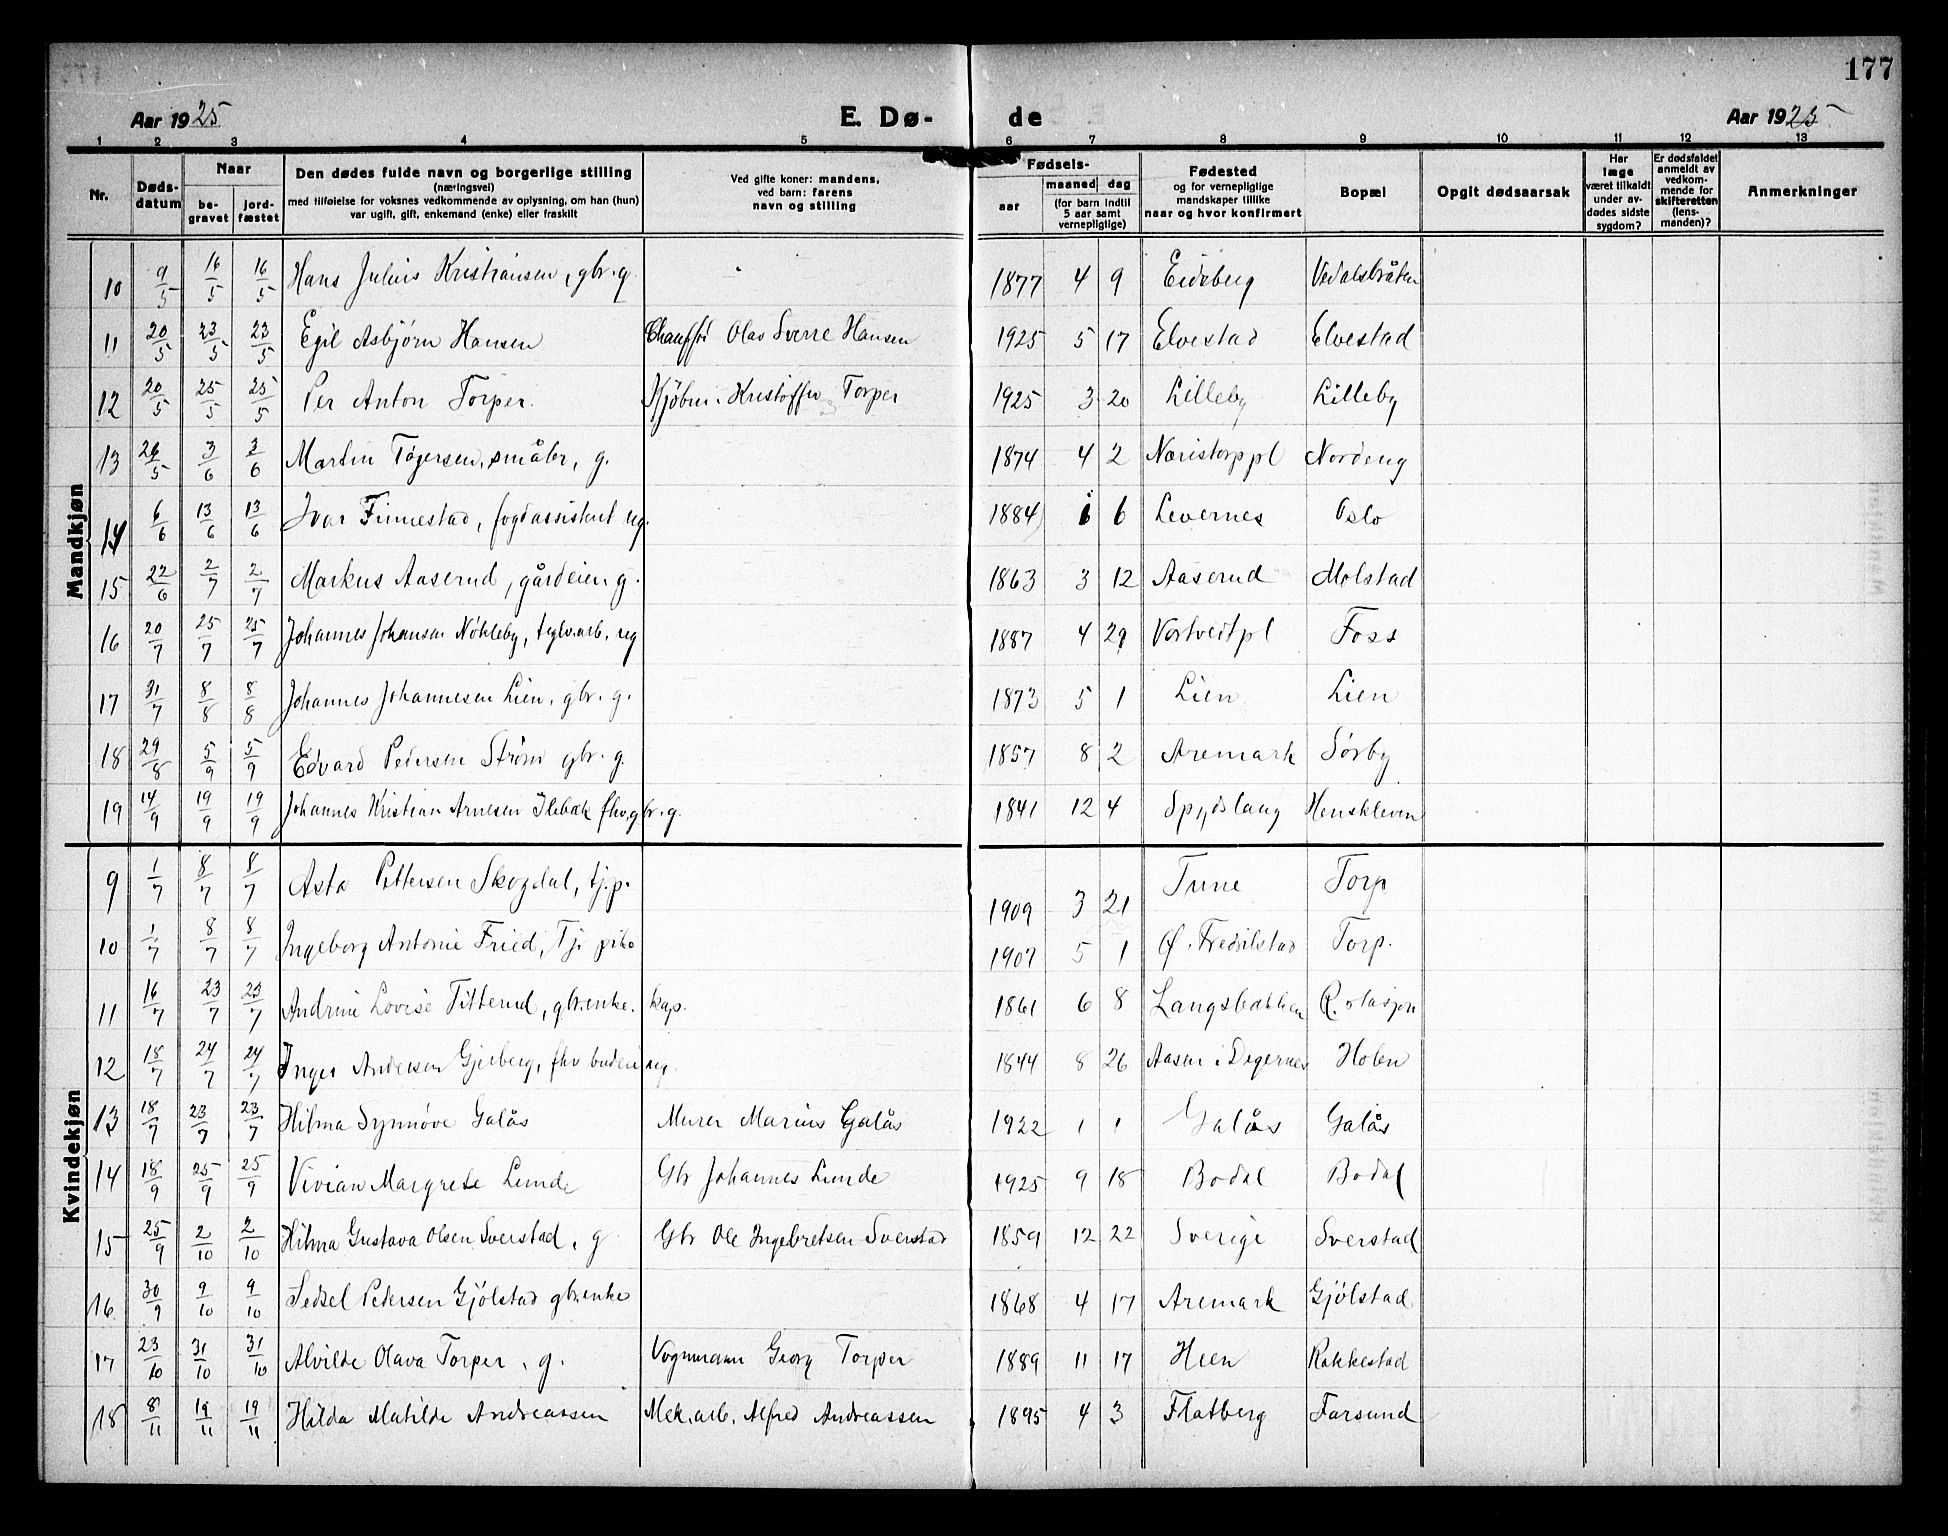 177
Aar 1925 E. Dø- de Aar 1925
1 2 3 4 5 6 7 8 9 10 11 12 13
Nr. Døds-datum Naar be-gravet jord-fæstet Den dødes fulde navn og borgerlige stilling (næringsvei) med tilføielse for voksnes vedkommende av oplysning, om han (hun) var ugift, gift, enkemand (enke) eller fraskilt Ved gifte koner: mandens, ved barn: farens navn og stilling Fødsels- aar maaned dag (for barn indtil 5 aar samt vernepligtige) Fødested og for vernepligtige mandskaper tillike naar og hvor konfirmert Bopæl Opgit dødsaarsak Har læge været tilkaldt under av-dødes sidste sygdom? Er dødsfaldet anmeldt av vedkom-mende for skifteretten (lens-manden)? Anmerkninger
Mandkjøn
10 9/5 16/5 16/5 Hans Julius Kristiansen, gbr. g. 1877 4 9 Eidsberg Vedalsbråten
11 20/5 23/5 23/5 Egil Asbjørn Hansen Chauffø Olav Sverre Hansen 1925 5 17 Elvestad Elvestad
12 20/5 25/5 25/5 Per Anton Torper. Kjøbm. Kristoffer Torper 1925 3 20 Lilleby Lilleby
13 26/5 3/6 3/6 Martin Tøgersen, småbr, g. 1874 4 2 Næristorp pl Nordeng
14 6/6 13/6 13/6 Ivar Finnestad, fogdassistent ug. 1884 6 6 Levernes Oslo
15 22/6 2/7 2/7 Markus Aaserud, gårdeier g. 1863 3 12 Aaserud Molstad
16 20/7 25/7 25/7 Johannes Johansen Nøkleby, teglv.arb. ug 1887 4 29 Vortveitpl Foss
17 31/7 8/8 8/8 Johannes Johannesen Lien, gbr. g. 1873 5 1 Lien Lien
18 29/8 5/9 5/9 Edvard Petersen Strøm gbr. g. 1857 8 2 Aremark Sørby
19 14/9 19/9 19/9 Johannes Kristian Arnesen Ilebæk fhv. gbr. g. 1841 12 4 Spydslaug Henskleven
Kvindekjøn
9 1/7 8/7 8/7 Asta Pettersen Skogdal, tj.p. 1909 3 21 Tune Torp
10 1/7 8/7 8/7 Ingeborg Antonie Fried, Tj. pike 1907 5 1 Ø. Fredrikstad Torp.
11 16/7 23/7 23/7 Andrine Lovise Titterud, gbr.enke. kap. 1861 6 8 Langsbakken R. stasjon
12 18/7 24/7 24/7 Inger Andersen Gjerberg, fhv budeie ug. 1844 8 26 Aasen i Degernes Holen
13 18/7 23/7 23/7 Hilma Synnøve Galås Murer Marius Galås 1922 1 1 Galås Galås
14 18/9 25/9 25/9 Vivian Margrete Lunde Gbr Johannes Lunde 1925 9 18 Bodal Bodal
15 25/9 2/10 2/10 Hilma Gustava Olsen Sverstad, g Gbr Ole Ingebretsen Sverstad 1859 12 22 Sverige Sverstad
16 30/9 9/10 9/10 Sedsel Petersen Gjølstad gbr.enke 1868 4 17 Aremark Gjølstad
17 23/10 31/10 31/10 Alvilde Olava Torper, g. Vognmann Georg Torper 1889 11 17 Heen Rakkestad
18 8/11 19/11 19/11 Hilda Matilde Andreassen Mek. arb. Alfred Andreassen 1895 4 3 Flatberg Farsund